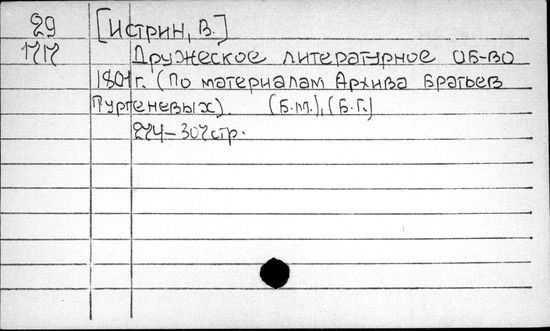 29 [Истрин, В.]
1717 Дружеское литературное об-во
1801г. (По материалам Архива братьев
Тургеневых). (Б.м.), (Б.Г.)
274-307стр.